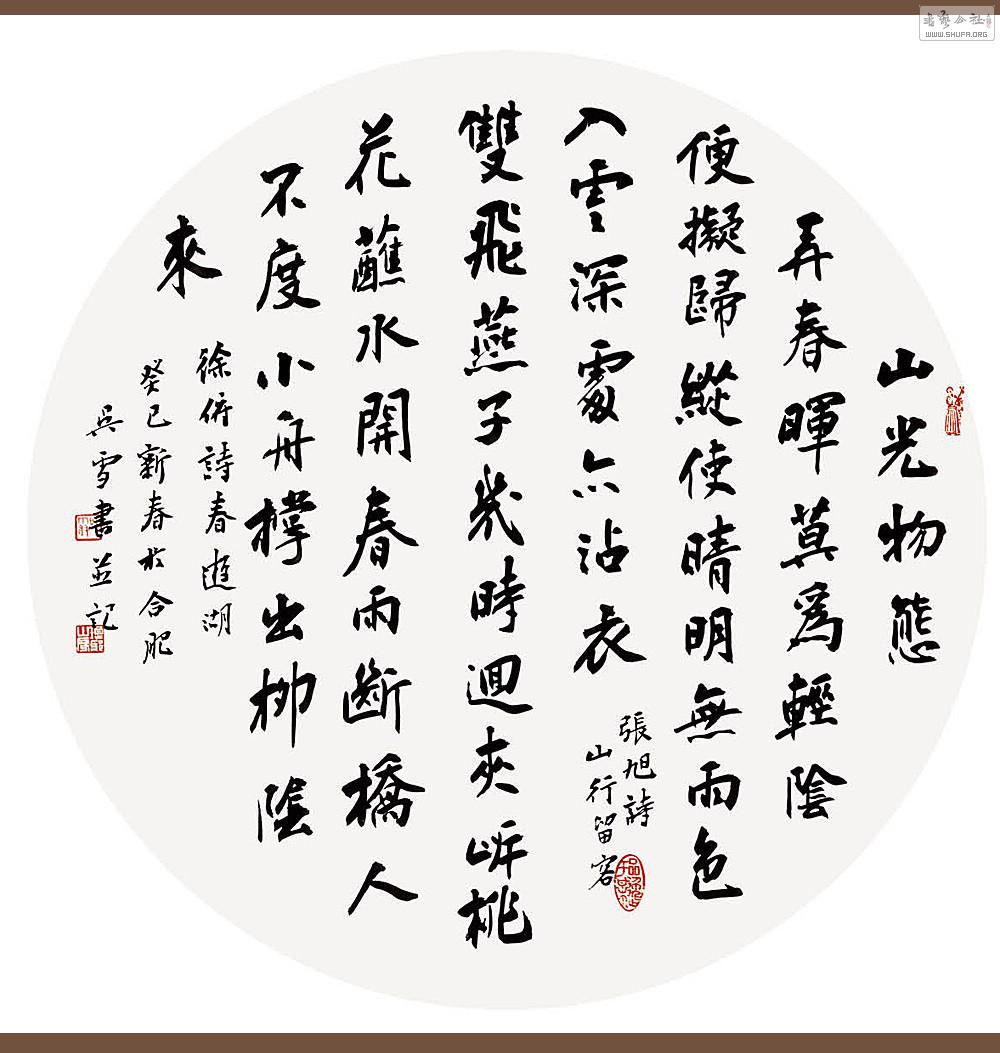 山光物態
弄春暉莫為輕陰
便擬歸縱使晴明無雨色
入雲深處亦沾衣
張旭詩
山行留客
雙飛燕子幾時迴夾岸桃
花蘸水開春雨斷橋人
不度小舟撑出柳陰
來
徐俯詩春遊湖
癸巳新春於合肥
吳雪書並記
WWW.SHUFA.ORG